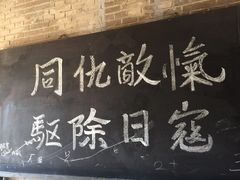 同仇敵愾
驅除日寇